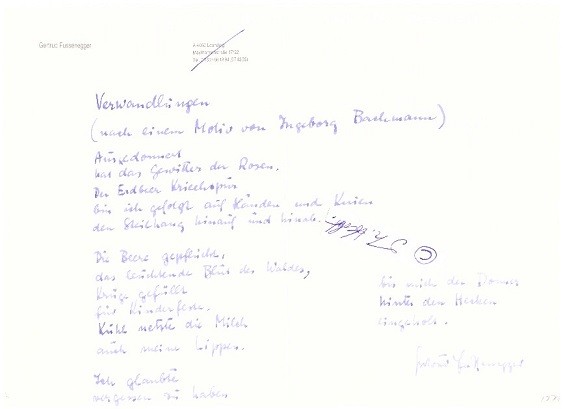 Gertrud Fussenegger
Verwandlungen
(nach einem Motiv von Ingeborg Bachmann)
Ausgedonnert
hat das Gewitter der Rosen.
Der Erdbeer
bin ich gefolgt auf Händen und Knien
den Steilhang hinauf und hinab.
©
Die Beere gepflückt,
das leuchtende Blut des Waldes,
Krüge gefüllt
für Kinderfeste.
Kühl netzte die Milch
auch meine Lippen.
Ich glaubte
vergessen zu haben
bis mich der Donner
hinter den Hecken
eingeholt.